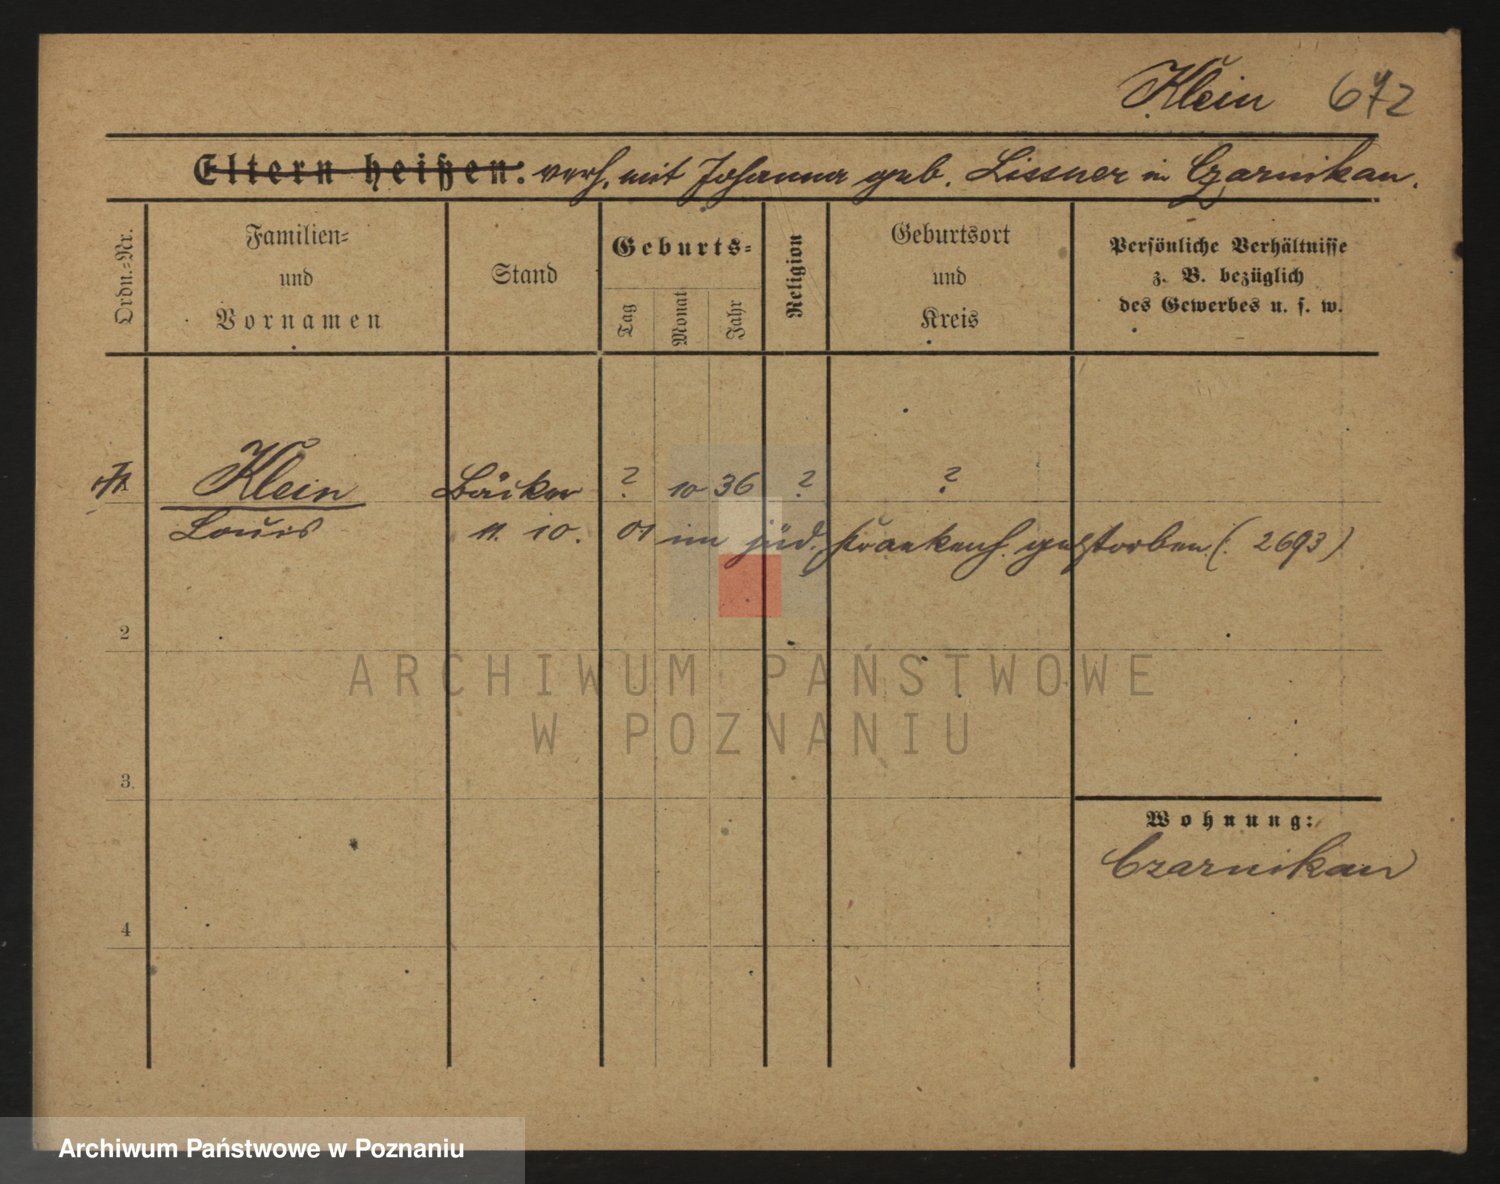 Klein 672
Eltern heißen: verh. mit Johanna geb. Lissner in Czarnikau.
Ordn.-Nr.
Familien-
und
Vornamen
Stand
Geburts-
Tag
Monat
Jahr
Religion
Geburtsort
und
Kreis
Persönliche Verhältnisse
z. B. bezüglich
des Gewerbes u. s. w.
Klein Bäcker ? 10 36 ? ?
Louis 11. 10. 01 im jüd. Krankenh. gestorben (. 2693)
2
3.
4
Wohnung:
Czarnikau
ARCHIWUM PAŃSTWOWE
W POZNANIU
Archiwum Państwowe w Poznaniu